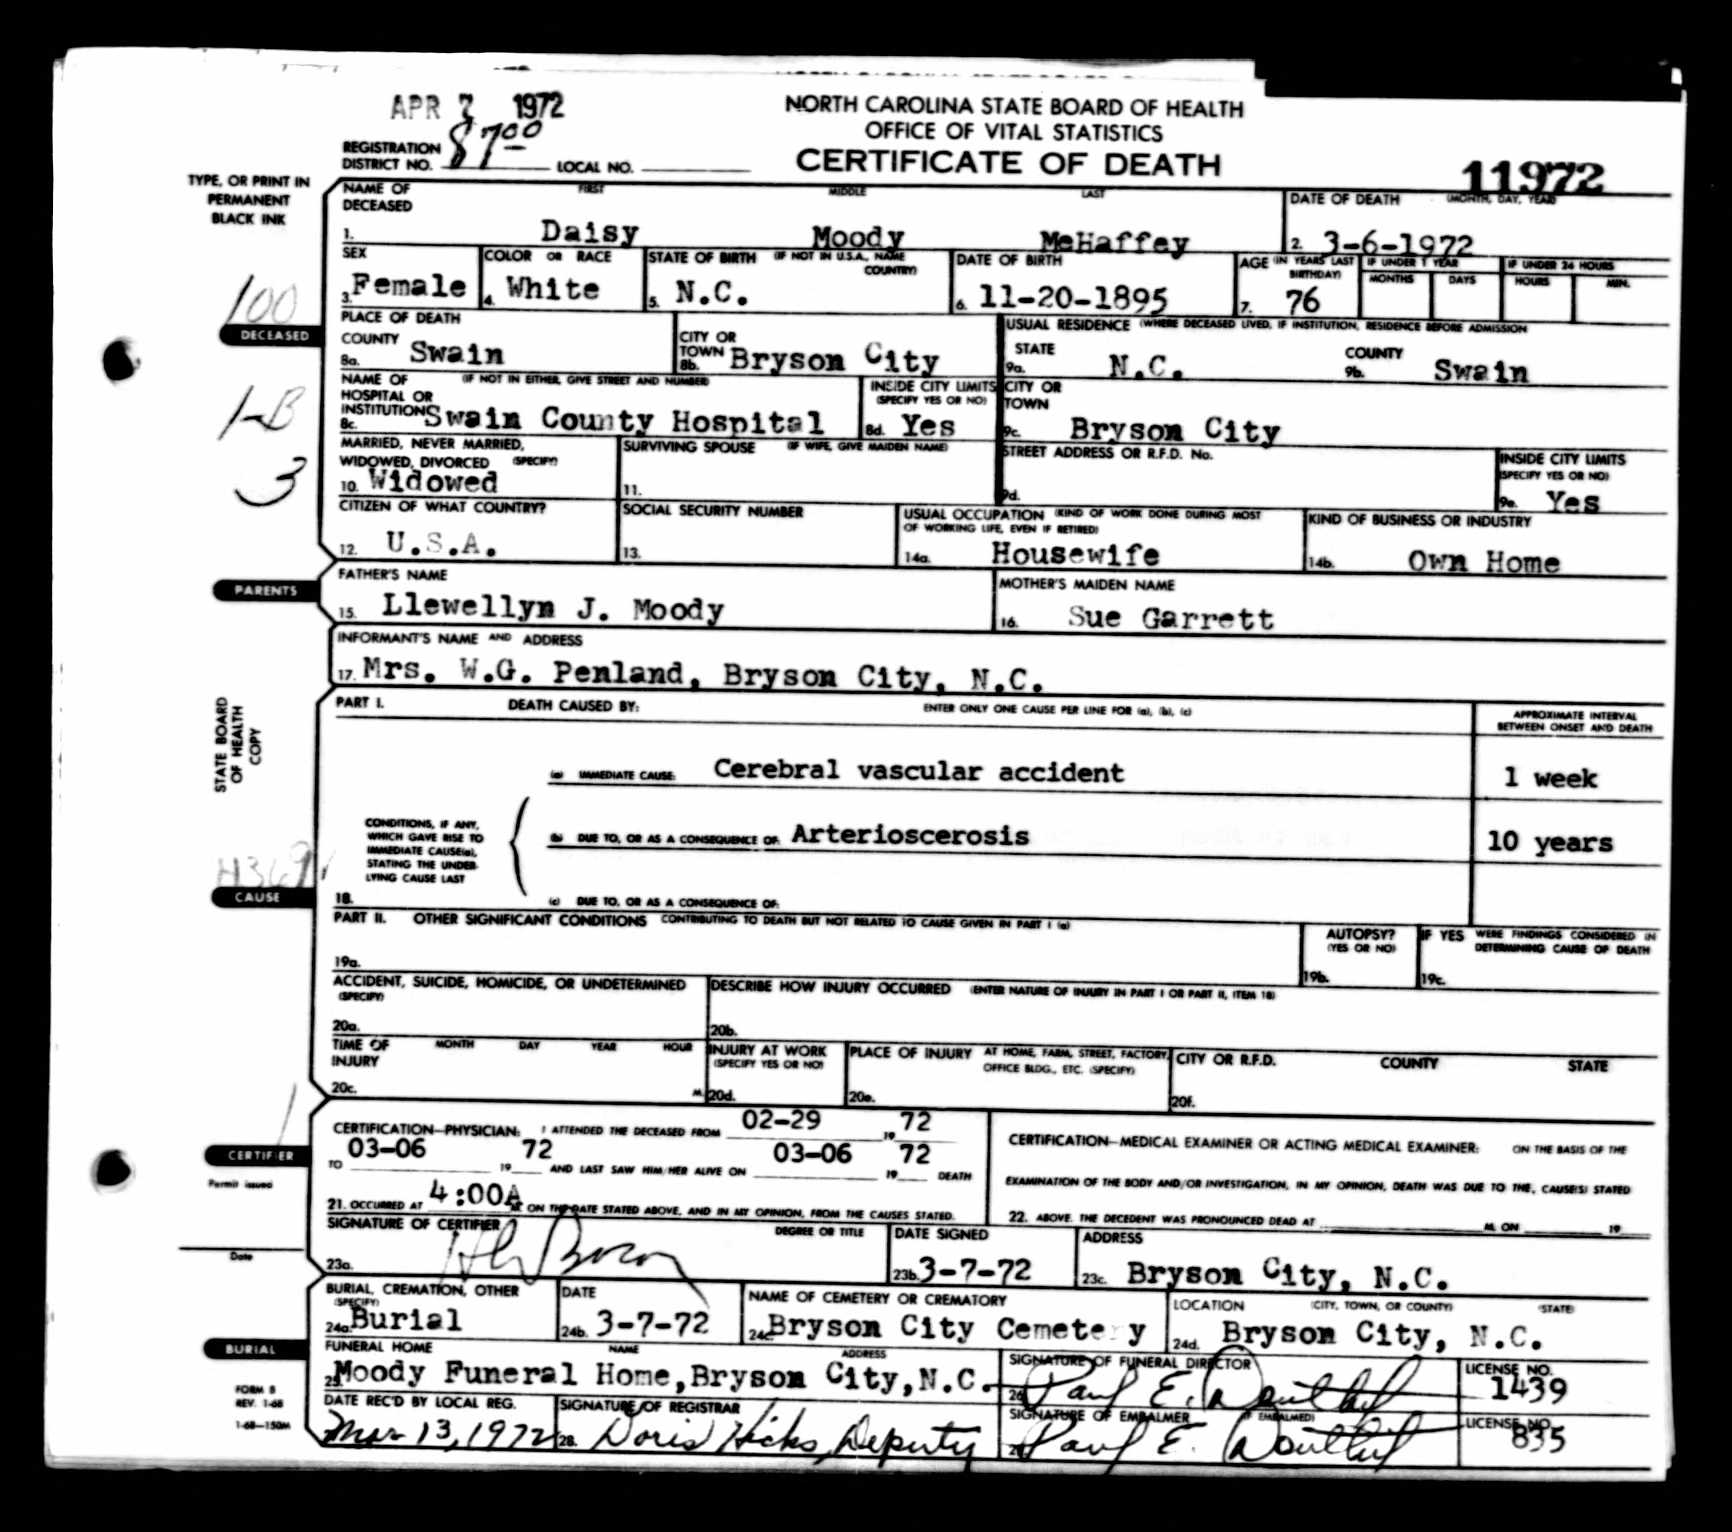 APR 7 1972
NORTH CAROLINA STATE BOARD OF HEALTH
OFFICE OF VITAL STATISTICS
CERTIFICATE OF DEATH
REGISTRATION DISTRICT NO. 8700 LOCAL NO.
11972
TYPE, OR PRINT IN
PERMANENT
BLACK INK
NAME OF DECEASED FIRST MIDDLE LAST DATE OF DEATH (MONTH, DAY, YEAR)
1. Daisy Moody McHaffey 2. 3-6-1972
SEX COLOR OR RACE STATE OF BIRTH (IF NOT IN U.S.A., NAME COUNTRY) DATE OF BIRTH AGE (IN YEARS LAST BIRTHDAY) IF UNDER 1 YEAR MONTHS DAYS IF UNDER 24 HOURS HOURS MIN.
3. Female 4. White 5. N.C. 6. 11-20-1895 7. 76
100
DECEASED
PLACE OF DEATH USUAL RESIDENCE (WHERE DECEASED LIVED, IF INSTITUTION, RESIDENCE BEFORE ADMISSION
COUNTY 8a. Swain CITY OR TOWN 8b. Bryson City STATE 9a. N.C. COUNTY 9b. Swain
NAME OF HOSPITAL OR INSTITUTION (IF NOT IN EITHER, GIVE STREET AND NUMBER) INSIDE CITY LIMITS (SPECIFY YES OR NO) CITY OR TOWN
8c. Swain County Hospital 8d. Yes 9c. Bryson City
1-B
3
MARRIED, NEVER MARRIED, WIDOWED, DIVORCED (SPECIFY) SURVIVING SPOUSE (IF WIFE, GIVE MAIDEN NAME) STREET ADDRESS OR R.F.D. No. INSIDE CITY LIMITS (SPECIFY YES OR NO)
10. Widowed 11. 9d. 9e. Yes
CITIZEN OF WHAT COUNTRY? SOCIAL SECURITY NUMBER USUAL OCCUPATION (KIND OF WORK DONE DURING MOST OF WORKING LIFE, EVEN IF RETIRED) KIND OF BUSINESS OR INDUSTRY
12. U.S.A. 13. 14a. Housewife 14b. Own Home
PARENTS
FATHER'S NAME MOTHER'S MAIDEN NAME
15. Llewellyn J. Moody 16. Sue Garrett
INFORMANT'S NAME AND ADDRESS
17. Mrs. W.G. Penland, Bryson City, N.C.
STATE BOARD
OF HEALTH
COPY
PART I. DEATH CAUSED BY: ENTER ONLY ONE CAUSE PER LINE FOR (a), (b), (c) APPROXIMATE INTERVAL BETWEEN ONSET AND DEATH
(a) IMMEDIATE CAUSE: Cerebral vascular accident 1 week
CONDITIONS, IF ANY,
WHICH GAVE RISE TO
IMMEDIATE CAUSE(a),
STATING THE UNDER-
LYING CAUSE LAST
(b) DUE TO, OR AS A CONSEQUENCE OF: Arterioscerosis 10 years
CAUSE
18. (c) DUE TO, OR AS A CONSEQUENCE OF:
PART II. OTHER SIGNIFICANT CONDITIONS CONTRIBUTING TO DEATH BUT NOT RELATED TO CAUSE GIVEN IN PART I (a) AUTOPSY? (YES OR NO) IF YES WERE FINDINGS CONSIDERED IN DETERMINING CAUSE OF DEATH
19a. 19b. 19c.
ACCIDENT, SUICIDE, HOMICIDE, OR UNDETERMINED (SPECIFY) DESCRIBE HOW INJURY OCCURRED (ENTER NATURE OF INJURY IN PART I OR PART II, ITEM 18)
20a. 20b.
TIME OF INJURY MONTH DAY YEAR HOUR INJURY AT WORK (SPECIFY YES OR NO) PLACE OF INJURY AT HOME, FARM, STREET, FACTORY, OFFICE BLDG., ETC. (SPECIFY) CITY OR R.F.D. COUNTY STATE
20c. M. 20d. 20e. 20f.
CERTIFIER
Permit issued
Date
CERTIFICATION—PHYSICIAN: I ATTENDED THE DECEASED FROM 02-29 19 72
TO 03-06 19 72 AND LAST SAW HIM/HER ALIVE ON 03-06 19 72 DEATH
21. OCCURRED AT 4:00A M. ON THE DATE STATED ABOVE, AND IN MY OPINION, FROM THE CAUSES STATED.
CERTIFICATION—MEDICAL EXAMINER OR ACTING MEDICAL EXAMINER: ON THE BASIS OF THE
EXAMINATION OF THE BODY AND/OR INVESTIGATION, IN MY OPINION, DEATH WAS DUE TO THE, CAUSE(S) STATED
22. ABOVE. THE DECEDENT WAS PRONOUNCED DEAD AT M. ON 19
SIGNATURE OF CERTIFIER DEGREE OR TITLE DATE SIGNED ADDRESS
23a. 23b. 3-7-72 23c. Bryson City, N.C.
BURIAL
BURIAL, CREMATION, OTHER (SPECIFY) DATE NAME OF CEMETERY OR CREMATORY LOCATION (CITY, TOWN, OR COUNTY) (STATE)
24a. Burial 24b. 3-7-72 24c. Bryson City Cemetery 24d. Bryson City, N.C.
FUNERAL HOME NAME ADDRESS SIGNATURE OF FUNERAL DIRECTOR LICENSE NO.
25. Moody Funeral Home, Bryson City, N.C. 26. Paul E. Douthit 1439
DATE REC'D BY LOCAL REG. SIGNATURE OF REGISTRAR SIGNATURE OF EMBALMER (IF EMBALMED) LICENSE NO.
Mar 13, 1972 28. Doris Hicks, Deputy Paul E. Douthit 835
FORM 8
REV. 1-68
1-68—150M